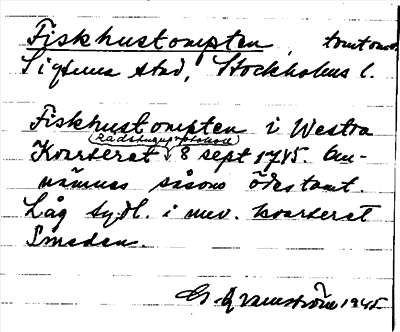 Fiskhustompten, tomtomr.
Sigtuna stad, Stockholms l.
Fiskhustompten i Westra
Rådstuguprotokoll
Kvarteret 8 sept 1745. Om-
nämnes såsom ödestomt.
Låg sydl. i nuv. kvarteret
Smeden.
G. Granström 1945